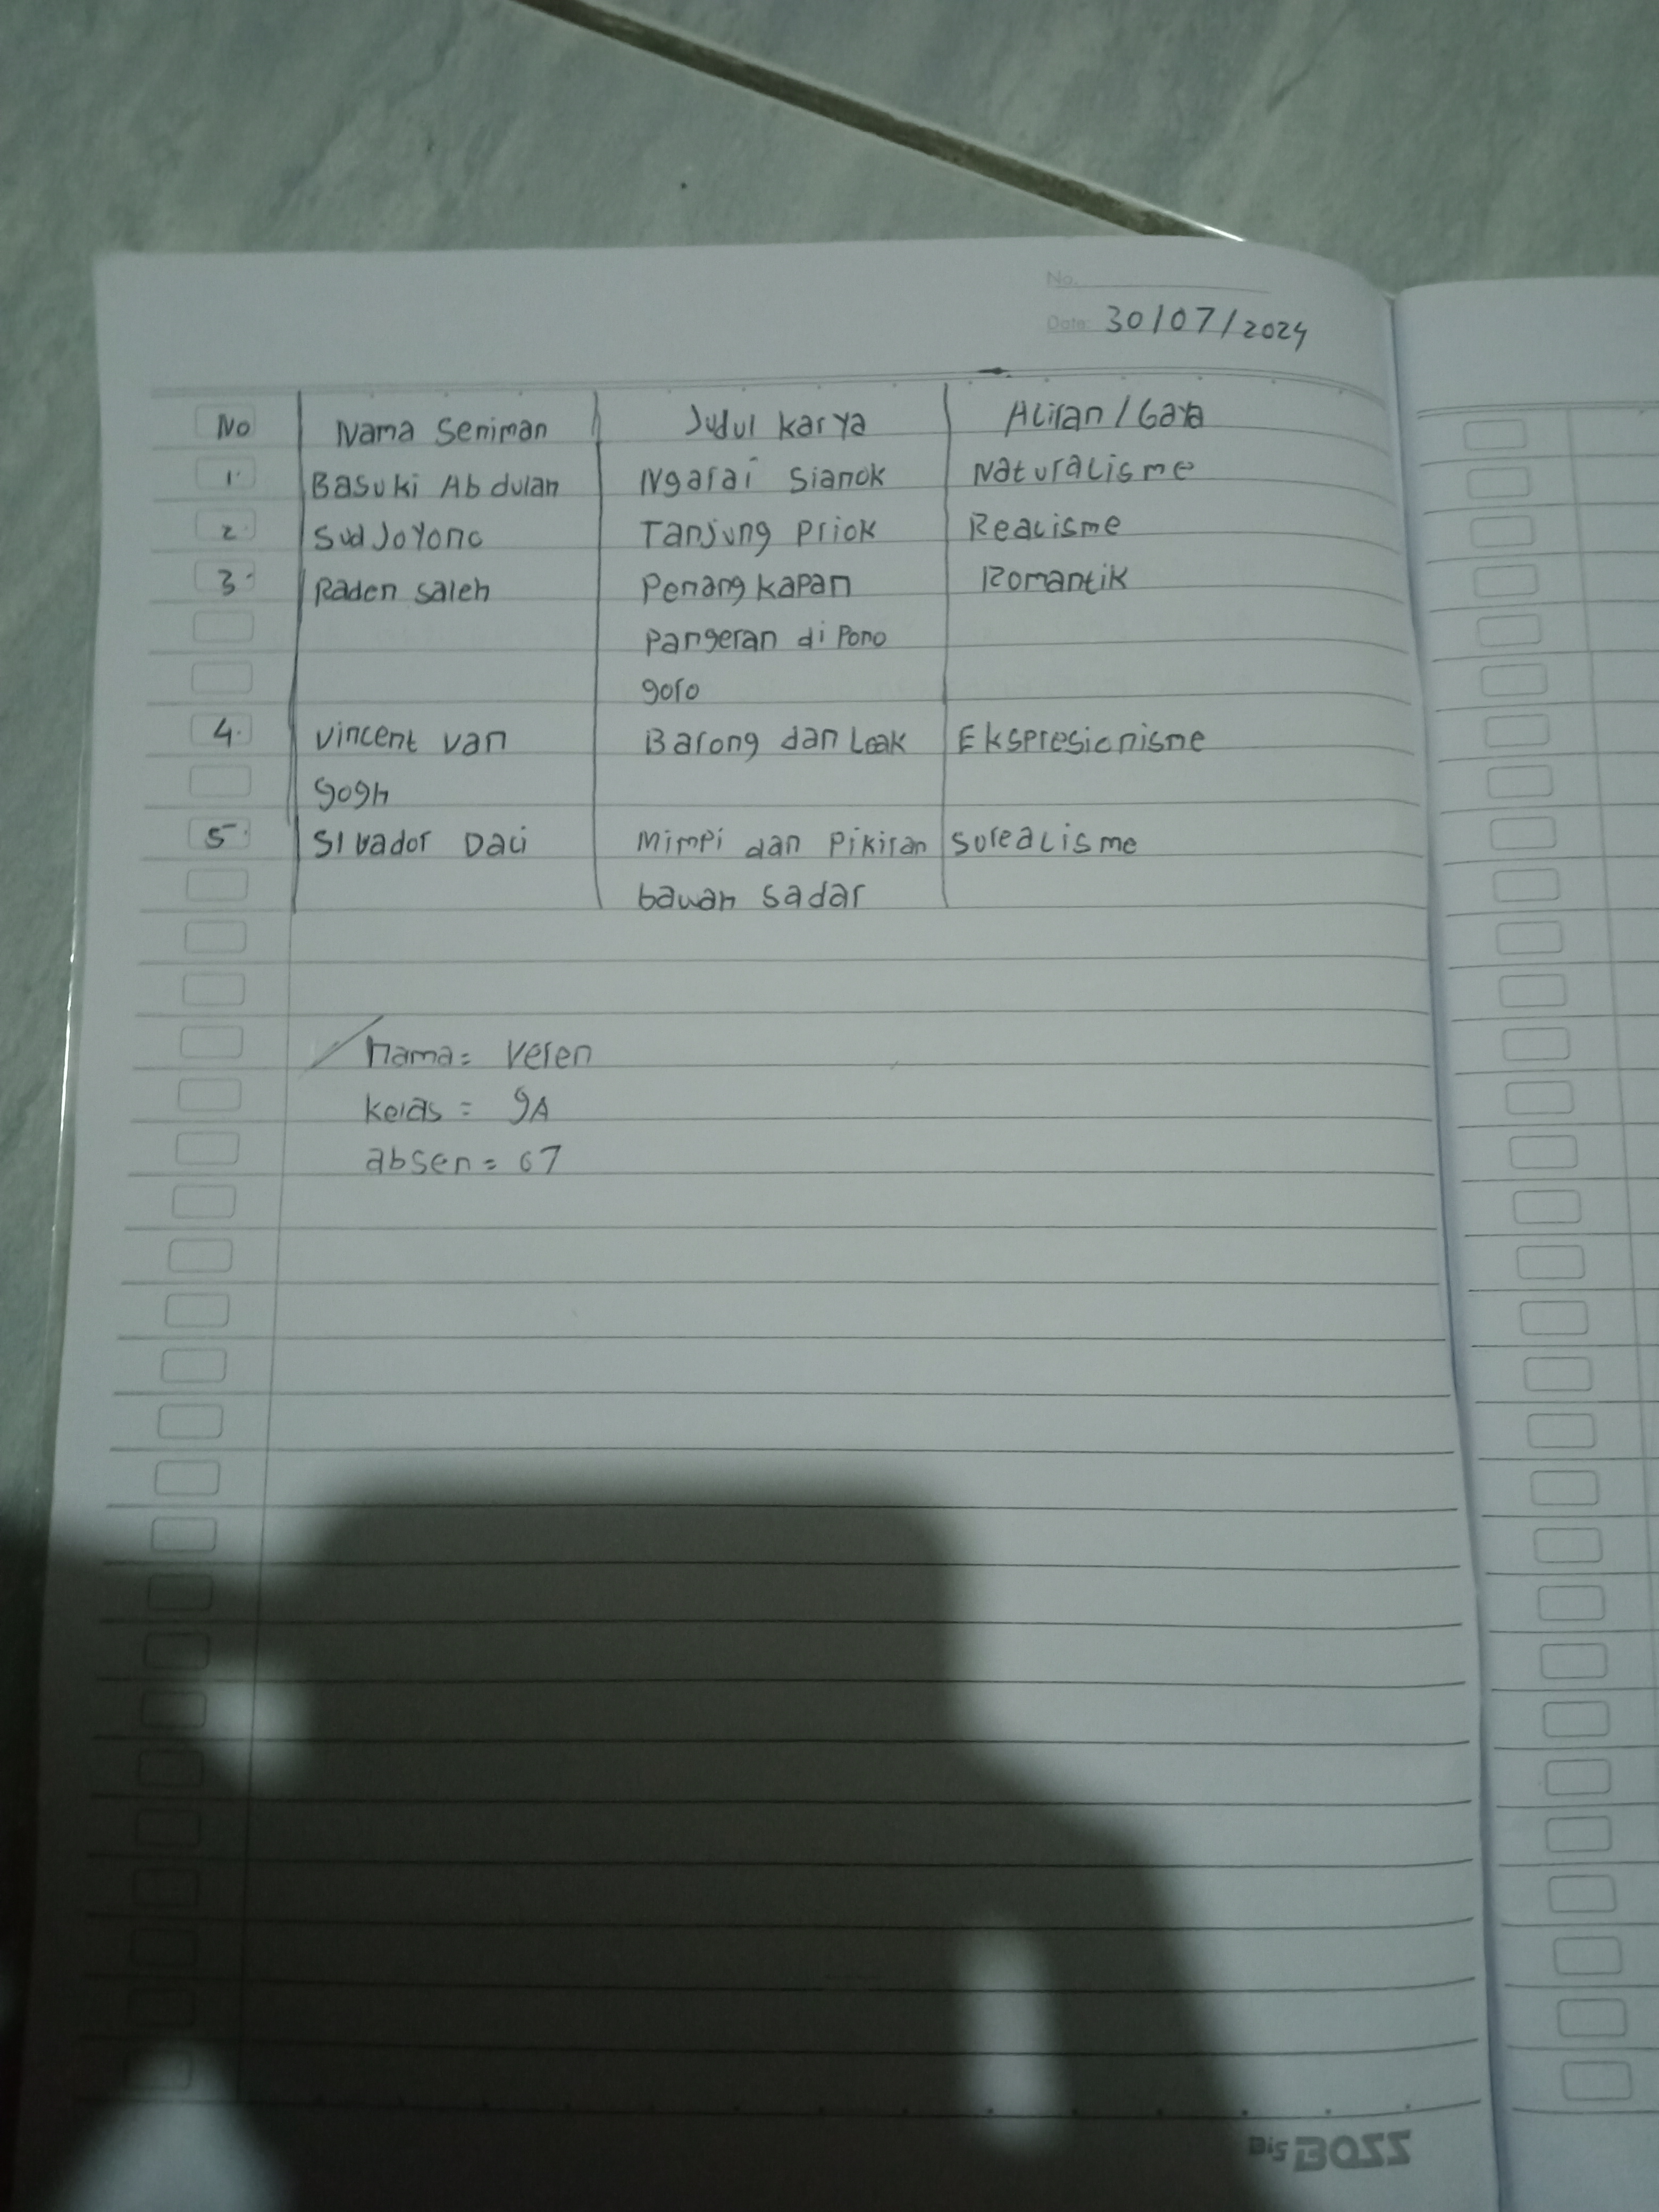 No.
Date: 30/07/2024
No Nama Seniman Judul Karya Aliran / Gaya
1. Basuki Abdulah Ngarai Sianok Naturalisme
2. SudJoYono Tanjung Priok Realisme
3. Raden Saleh Penang kapan Romantik
Pangeran di Pono
goro
4. Vincent van Barong dan Leak Ekspresionisme
gogh
5. Slvador Dali Mimpi dan Pikiran Surealisme
bawah sadar
nama = Veren
kelas = 9A
absen = 07
Big BOSS